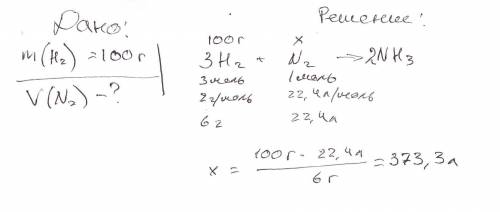 Дано:
m(H₂) = 100г
V(N₂) - ?
Решение:
100г x
3H₂ + N₂ → 2NH₃
3моль 1моль
2г/моль 22,4л/моль
6г 22,4л
x = 100г · 22,4л / 6г = 373,3л